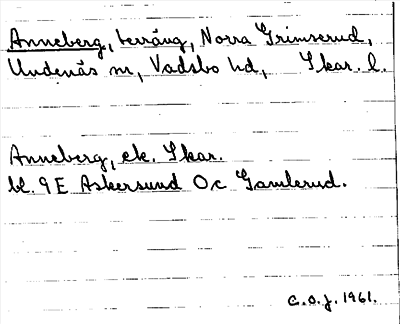 Anneberg, terräng, Norra Grimserud,
Undenäs sn, Vadsbo hd, Skar. l.
Anneberg, ek. Skar.
bl. 9 E Askersund O c Gamlerud.
C.O.J. 1961.